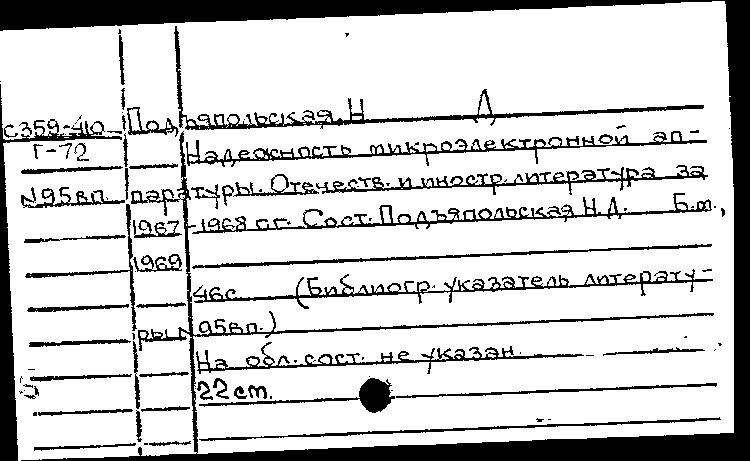 С359-410 Подъяпольская, Н Д
Г-72 Надежность микроэлектронной ап-
N95вп. паратуры. Отечеств. и иностр. литература за
1967-1968 гг. Сост. Подъяпольская Н.Д. Б.м.,
1969
46с. (Библиогр. указатель литерату-
ры N95вп.)
На обл. сост. не указан.
22 ст.